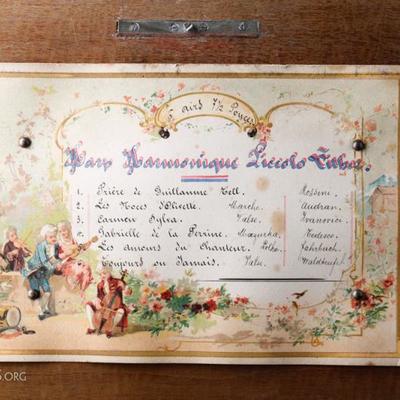 6 airs 7½ Pouces
Harp Harmonique Piccolo Zither.
1. Prière de Guillaume Tell. Rossini.
2. Les Noces d'Olivette. Marche. Audran.
3. Carmen Sylva. Valse. Ivanovici
Gabrielle de la Perine. Mazurka.
Les amours du Chanteur. Polka.
Toujours ou Jamais. Valse. Waldteufel
.ORG